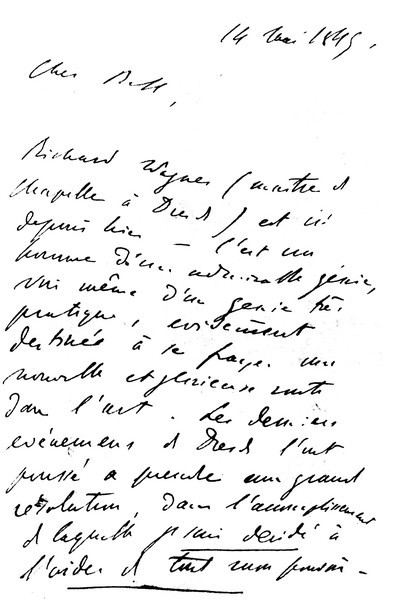 14 Mai 1849,
Cher B
Richard Wagner (maitre d
chapelle à Dresd) est ici
depuis hier — C'est un
homme d'un admirable génie,
voir même d'un genie très
pratique, evidement
destiné à se frayer une
nouvelle et glorieuse route
dans l'art. Les derniers
evénemens d Dresd l'ont
poussé a prendre une grand
résolution, dans l'accomplissement
d laquelle je suis decidé à
l'aider d tout mon pouvoir –